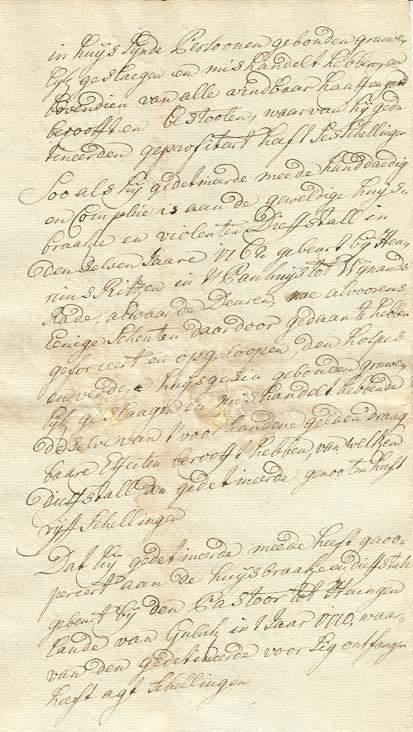 in huijs sijnde Persoonen gebonden grouwe
lijk geslaegen en mishandelt hebben, en
bovendien van alle vindbaar haaff en goed
berooft en bestooten, waar van hij gede
tineerden geprofiteert heeft ses schellingen
Soo als hij gedetineerde meede handdaedig
en Complice is aan de geweldige huijs
braake en violenten Dieffstall in
den selven Jaare gebeurt bij Hen
rinus Ritzen in 't Panhuijs tot Wijnands
Rade, alwaar de Deuren, nae alvoorens
Eenige Scheuten daar door gedaan te hebben
geforceert en opgeloopen, den hospes
en verdere huijsgesin gebonden grouwe
lijk geslaagen en mishandelt hebbende
deselve van 't voorhandene geld en draag
baare Effecten berooft hebben van welken
dieffstall den gedetineerde genooten heeft
vijff Schellingen
Dat hij gedetineerde meede heeft gecoo
pereert aan de huijsbraake en dieffstall
gebeurt bij den Pastoor tot
lande van Gulick in 't Jaar 1770, waar
van den gedetineerde voor sig ontfangen
heeft agt Schellingen